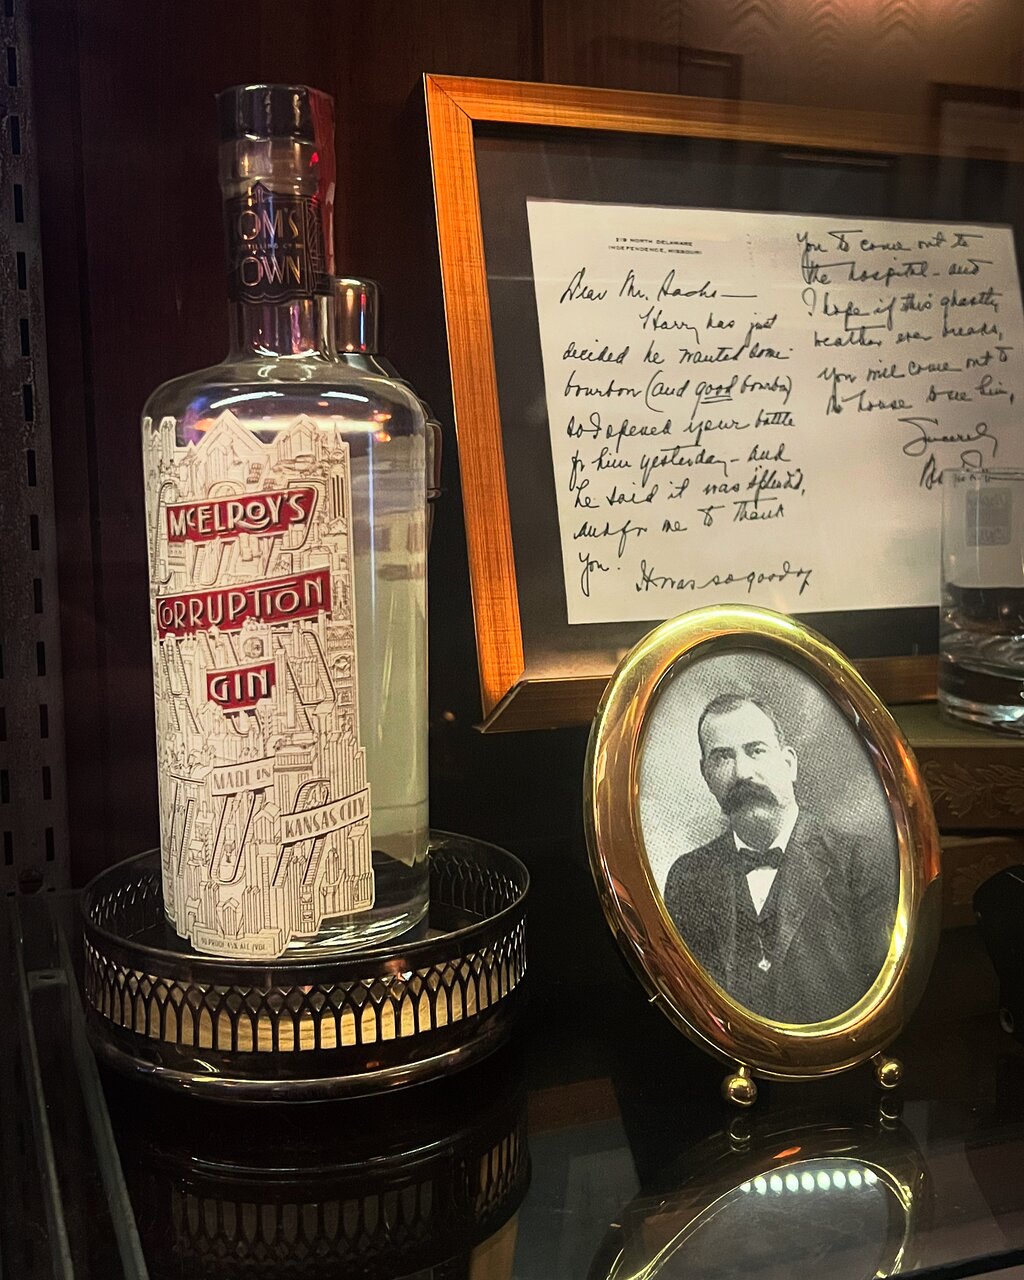 OM'S
OWN
McELROY'S
CORRUPTION
GIN
MADE IN
KANSAS CITY
90 PROOF 45% ALC./VOL.
219 NORTH DELAWARE
INDEPENDENCE, MISSOURI
Dear Mr. Sachs—
Harry has just
decided he wanted some
bourbon (and good bourbon)
so I opened your bottle
for him yesterday - and
he said it was splendid,
and for me to thank
you.
It was so good of
you to come out to
the hospital - and
I hope if this ghastly
weather ever breaks,
you will come out to
the house to see him,
Sincerely